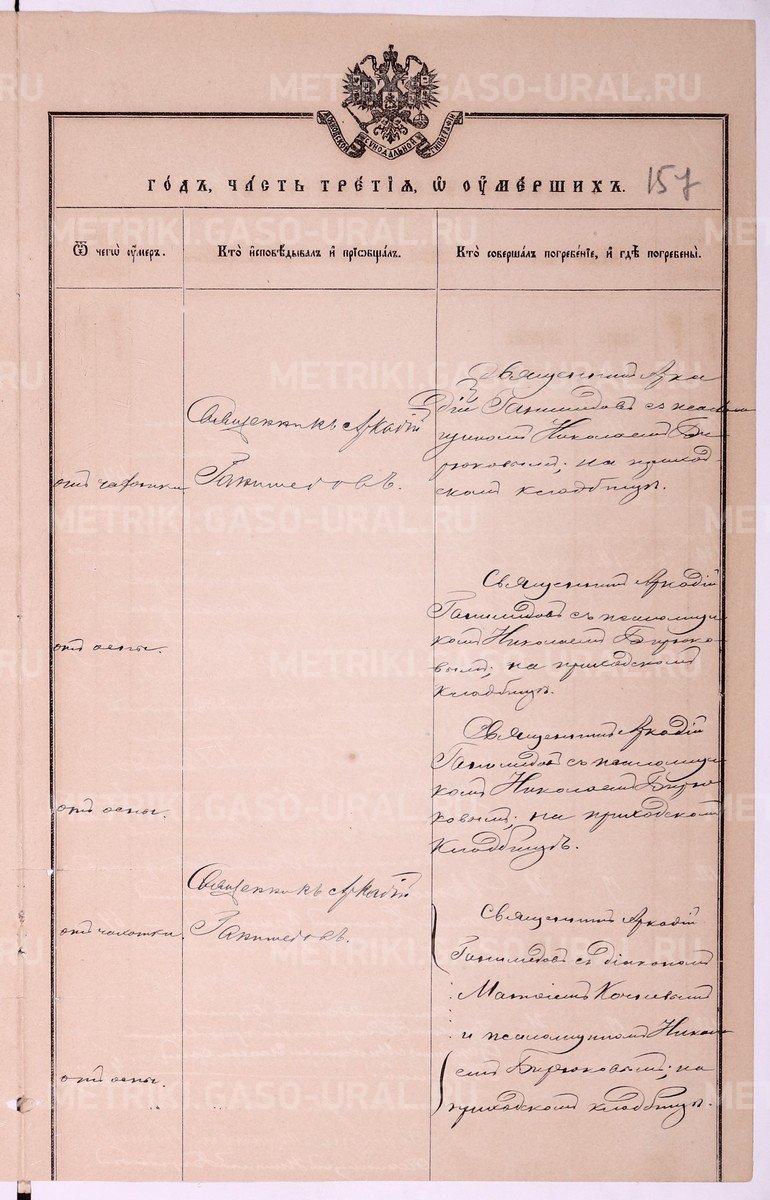 МОСКОВСКОЙ СѴНОДАЛЬНОЙ ТИПОГРАФІИ
ГО́ДЪ, ЧА́СТЬ ТРЕ́ТІѦ, Ѡ҆ ОУ҆МЕ́РШИХЪ.
157
Ѿ чегѡ̀ оу҆́меръ.
Кто̀ и҆сповѣ́дывалъ и҆ прїѡбща́лъ.
Кто̀ соверша́лъ погребе́нїе, и҆ гдѣ̀ погребены̀.
отъ чахотки
Священникъ Аркадій
Ганимедовъ.
Священникъ Арка
дій Ганимедовъ съ псалом
щикомъ Николаемъ Би-
рюковымъ; на приход
скомъ кладбищѣ.
отъ оспы.
Священникъ Аркадій
Ганимедовъ съ псаломщи
комъ Николаемъ Бирюко-
вымъ; на приходскомъ
кладбищѣ.
отъ оспы.
Священникъ Аркадій
Ганимедовъ съ псаломщи
комъ Николаемъ Бирю-
ковымъ; на приходскомъ
кладбищѣ.
отъ чахотки.
Священникъ Аркадій
Ганимедовъ.
Священникъ Аркадій
Ганимедовъ съ діакономъ
и псаломщикомъ Никола
емъ Бирюковымъ; на
приходскомъ кладбищѣ.
отъ оспы.
METRIKI.GASO-URAL.RU